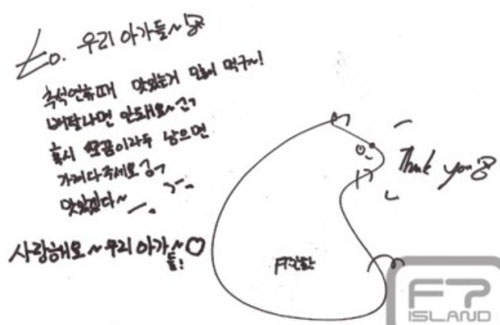 to. 우리 아가들~
추석연휴때 맛있는거 많이 먹구~!
배탈나면 안돼요~
혹시 이라두 남으면
가져다주세요ㅋㅋ
맛있겠다~
사랑해요~우리 아가들~♡
Thank you
FT
FT
ISLAND